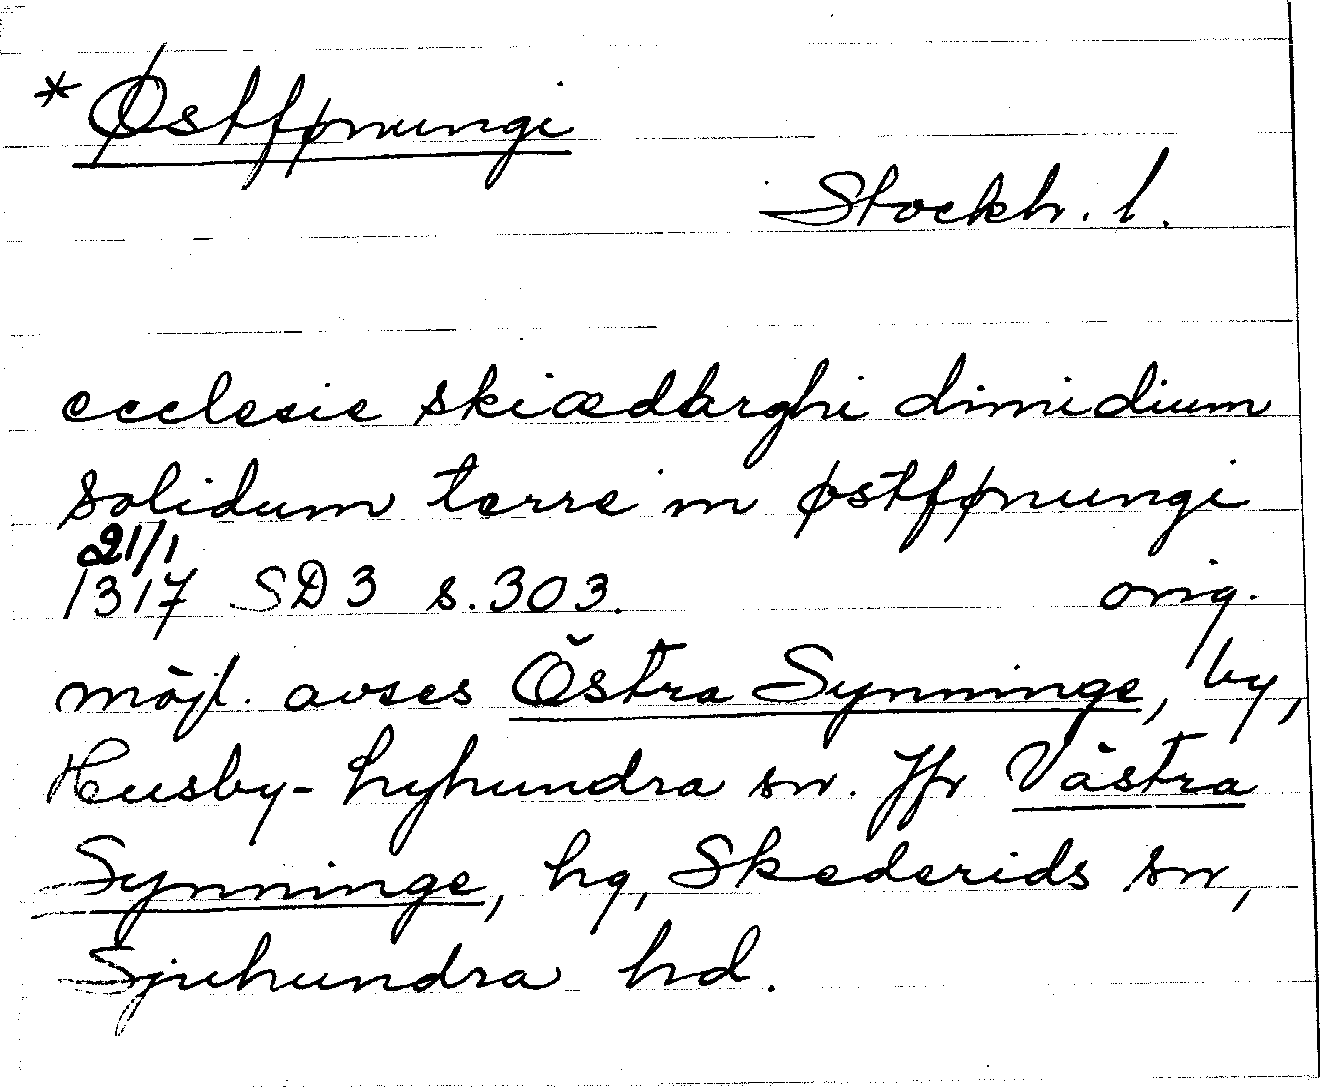 * Østfønungi
Stockh. l.
ecclesie skiædbrghi dimidium
solidum terre in østfønungi
21/1
1317 SD 3 s. 303. orig.
möjl. avses Östra Synninge, by,
Husby-Lyhundra sn. Jfr Västra
Synninge, hg, Skederids sn,
Sjuhundra hd.